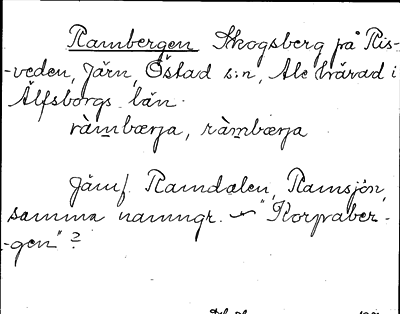 Rambergen Skogsberg på Ris-
-veden, Järn, Östad s:n, Ale härad i
Älfsborgs län.
ràmbærja, ràmbærja
Jämf. Ramdalen, Ramsjön,
samma namngr. ~ "Korpaber-
-gen" ?